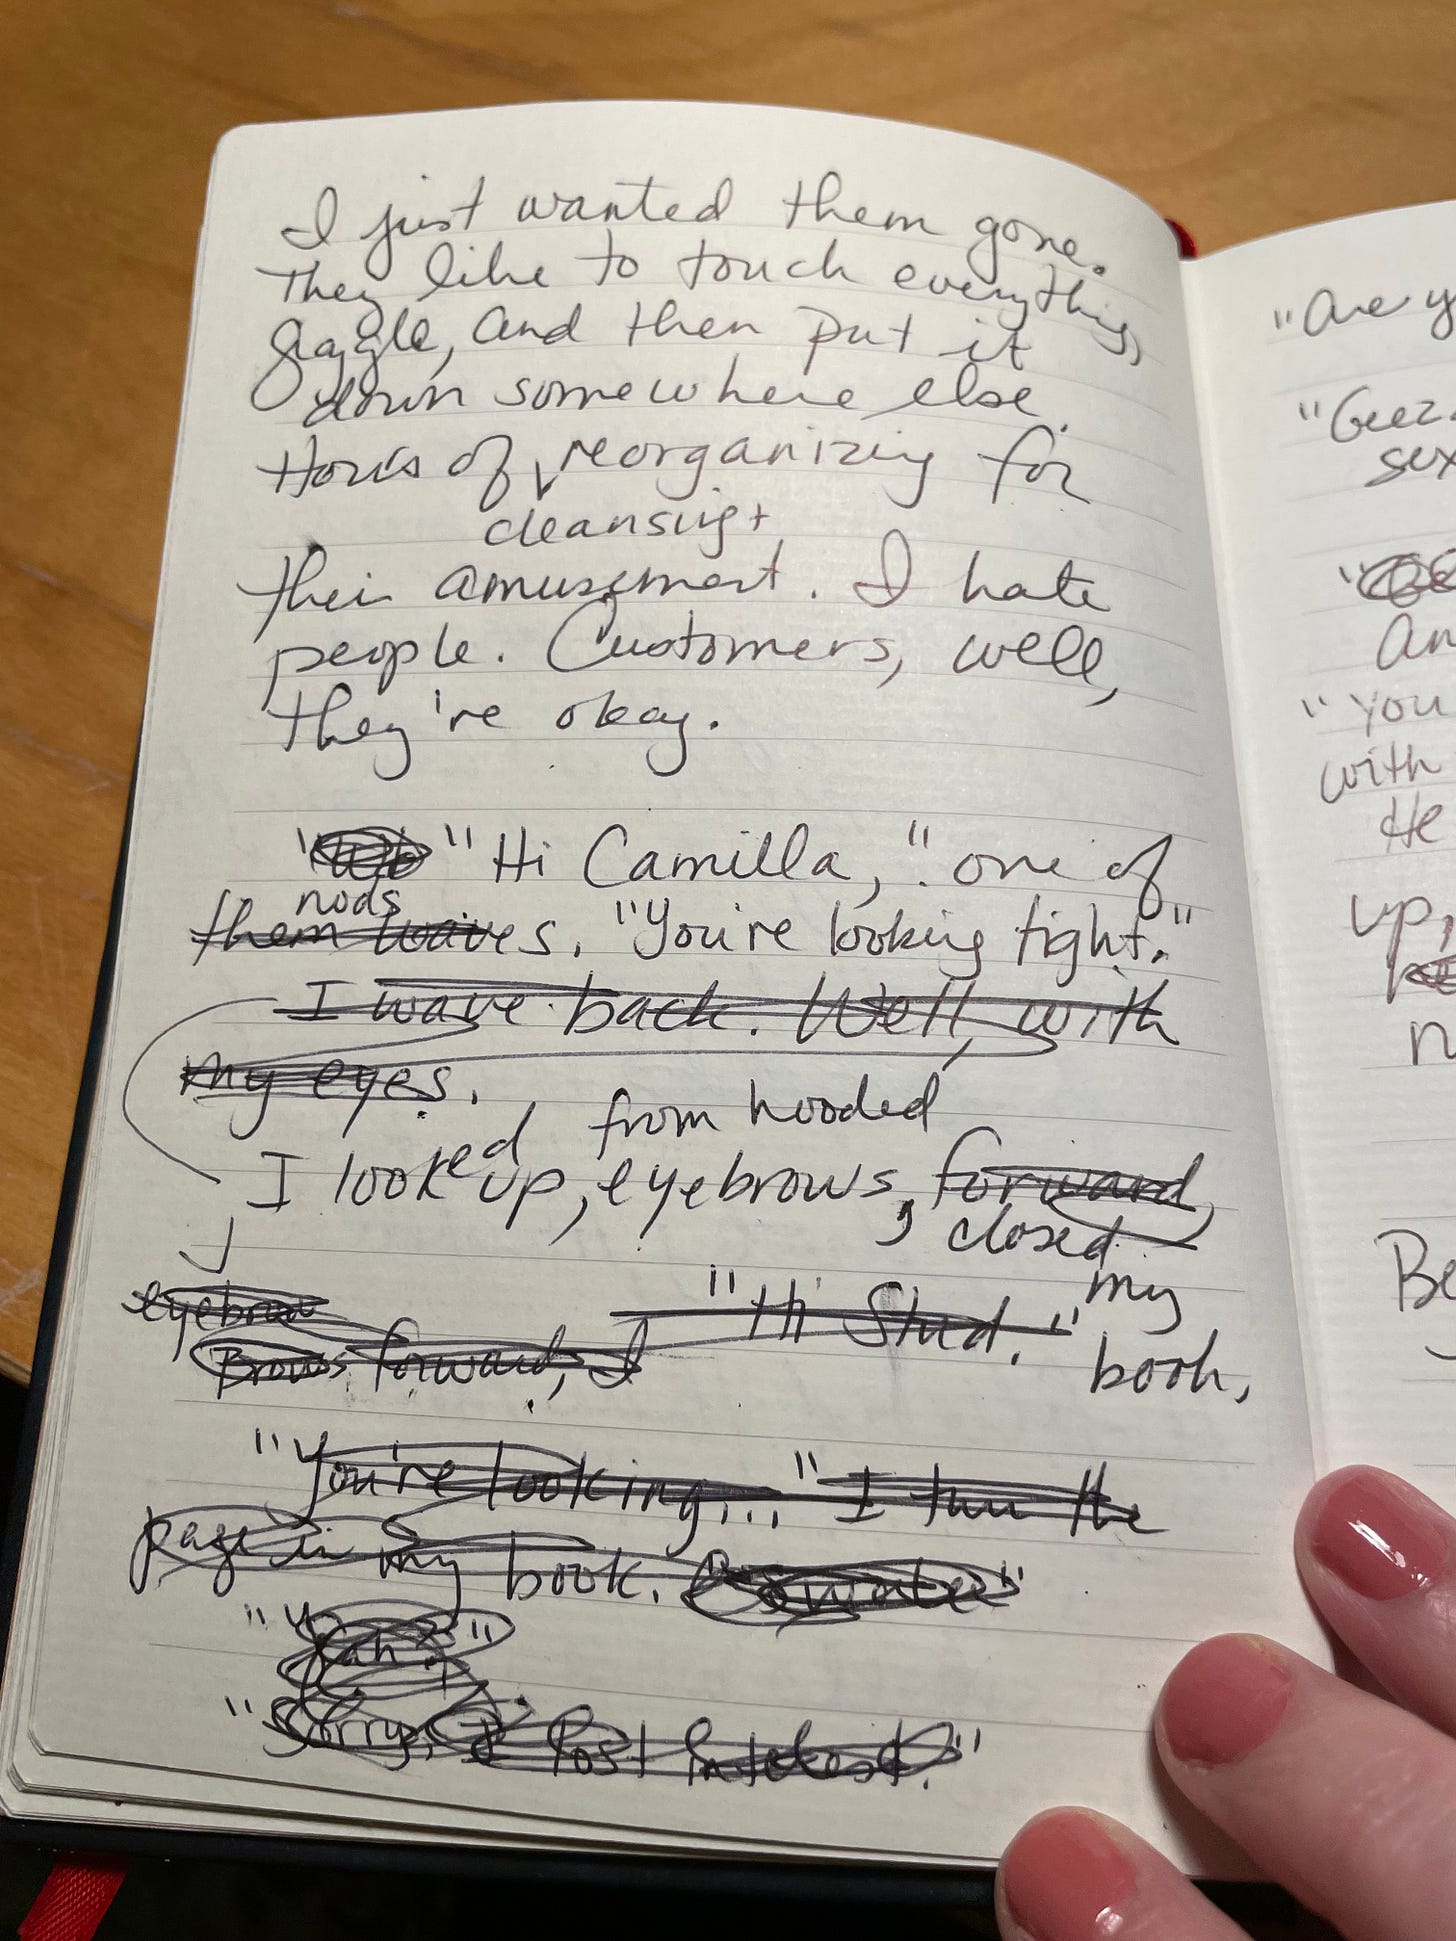 I just wanted them gone.
They like to touch everything,
giggle, and then put it
down somewhere else.
Hours of reorganizing for
cleansing +
their amusement. I hate
people. Customers, well,
they're okay.
"Hi Camilla," one of
nods
them waves. "You're looking tight."
I wave back. Well, with
my eyes.
from hooded
I looked up, eyebrows, forward,
closed
my
eyebrow
"Hi Stud."
Brows forward, I
book,
"You're looking..." I turn the
page in my book.
"Yeah?"
"Sorry, I lost interest."
"Are y
"Geez.
sex
An
"You
with
He
up,
n
Be